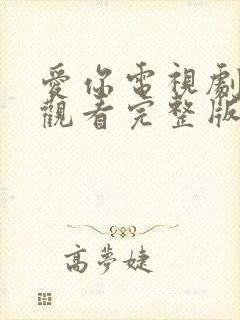 愛你電視劇
觀看完整版
高夢婕